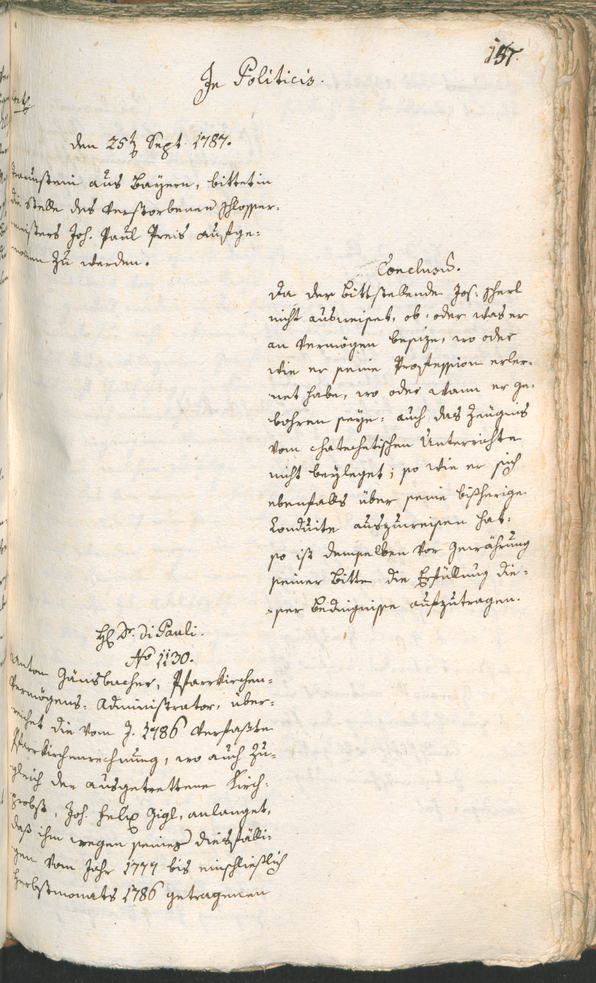 157.
In Politicis.
den 25t Sept. 1787.
Traunstein aus Bayern, bittet in
die Stelle des verstorbenen Schlosser-
meisters Joh. Paul Preis aufge-
nomen zu werden.
Conclusũ.
Da der Bittstellende Jos.
nicht ausweiset, ob, oder was er
an Vermögen besize, wo oder
wie er seine Profession erler-
net habe, wo oder wann er ge-
bohren seye, auch das Zeugnis
vom chatechetischen Unterrichte
nicht beyleget; so wie er sich
ebenfalls über seine bisherige
Conduite auszuweisen hat,
so ist demselben vor Gewährung
seiner Bitte die Erfüllung die-
ser Bedingnisse aufzutragen.
H. Dr. di Pauli.
No 1130.
Anton Zünsbacher, Pfarrkirchen-
Vermögens-Administrator, über-
reichet die vom J. 1786 verfaßte
Pfarrkirchenrechnung, wo auch zu-
gleich der ausgetrettene Kirch-
probst, Joh. Felix Zigl, anlanget,
daß ihm wegen seiner diesfälli-
gen vom Jahr 1777 bis einschließlich
Herbstmonats 1786 getragenen